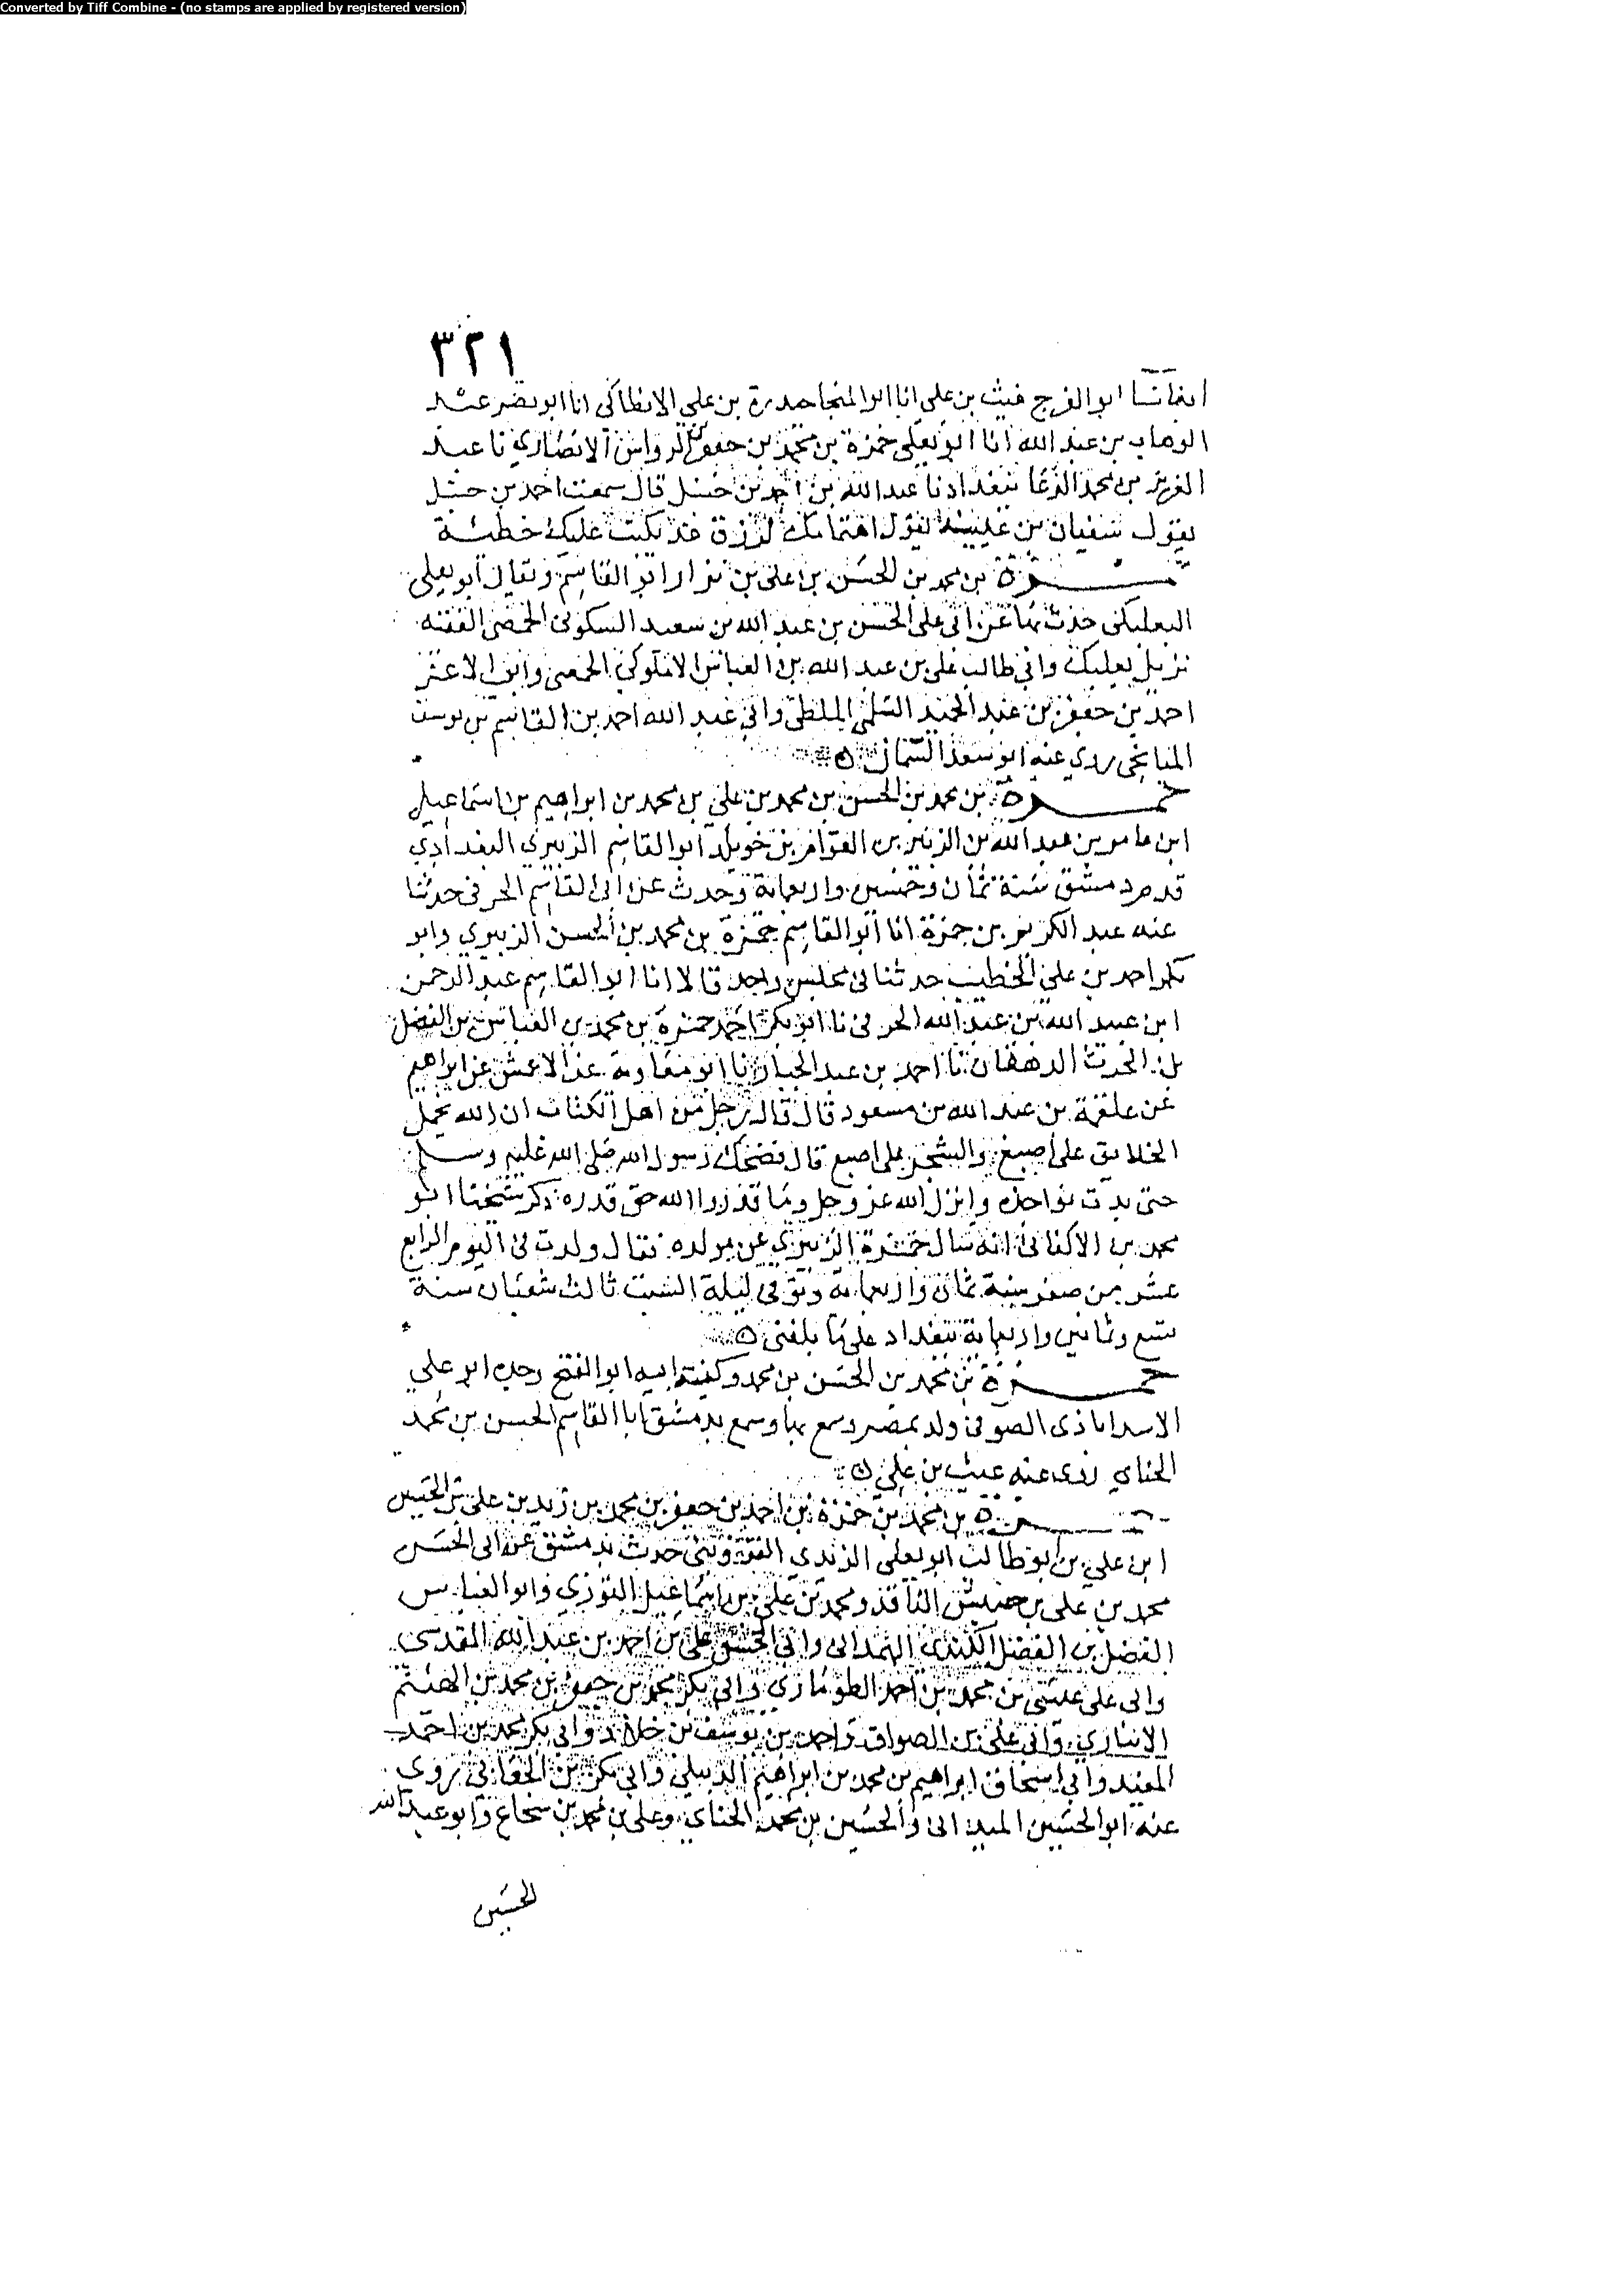 Converted by Tiff Combine - (no stamps are applied by registered version)
٣٢١
انبانا ابو الفرج غيث بن علي انا ابو المنجا حيدرة بن علي الانطاكي انا ابو نصر عبد
الوهاب بن عبد الله انا ابو يعلى حمزة بن محمد بن جعفر الرواس الانصاري نا عبد
العزيز بن محمد الدعا ببغداد نا عبد الله بن احمد بن حنبل قال سمعت احمد بن حنبل
يقول سفيان بن عيينة يقول اهتمامك لرزق غد يكتب عليك خطيئة
حمزة بن محمد بن الحسن بن علي بن نزار ابو القاسم ويقال ابو يعلى
البعلبكي حدث بها عن ابي علي الحسن بن عبد الله بن سعيد السكوني الحمصي الفقيه
نزيل بعلبك وابي طالب علي بن عبد الله بن العباس الحمصي وابي الاعز
احمد بن جعفر بن عبد الحميد السلمي الملطي وابي عبد الله احمد بن القاسم بن يوسف
الميانجي روى عنه ابو سعد السمان ه
حمزة بن محمد بن الحسن بن محمد بن علي بن محمد بن ابراهيم بن اسماعيل
ابن عامر بن عبد الله بن الزبير بن العوام بن خويلد ابو القاسم الزبيري البغدادي
قدم دمشق سنة ثمان وخمسين واربعماية وحدث عن ابي القاسم الحرفي حدثنا
عنه عبد الكريم بن حمزة انا ابو القاسم حمزة بن محمد بن الحسن الزبيري وابو
بكر احمد بن علي الخطيب حدثنا في مجلس واحد قالا انا ابو القاسم عبد الرحمن
ابن عبيد الله بن عبد الله الحرفي نا ابو بكر احمد حمزة بن محمد بن العباس بن الفضل
بن الحرث الدهقان نا احمد بن عبد الجبار نا ابو معاوية عن الاعمش عن ابراهيم
عن علقمة بن عبد الله بن مسعود قال قال رجل من اهل الكتاب ان الله يحمل
الخلايق على اصبع والشجر على اصبع قال فضحك رسول الله صلى الله عليه وسلم
حتى بدت نواجذه وانزل الله عز وجل وما قدروا الله حق قدره ذكر شيخنا ابو
محمد بن الاكفاني انه سال حمزة الزبيري عن مولده فقال ولدت في اليوم الرابع
عشر من صفر سنة ثمان واربعماية وتوفي ليلة السبت ثالث شعبان سنة
تسع وثمانين واربعماية ببغداد على ما بلغني ه
حمزة بن محمد بن الحسن بن محمد وكنية ابيه ابو الفتح وجده ابو علي
الاسداباذي الصوفي ولد بمصر وسمع بها وسمع بدمشق ابا القاسم الحسن بن محمد
الحناي روى عنه غيث بن علي ه
حمزة بن محمد بن حمزة بن احمد بن جعفر بن محمد بن زيد بن علي بن الحسين
ابن علي بن ابو طالب ابو يعلى الزيدي حدث بدمشق عن ابي الحسن
محمد بن علي بن حبيش الناقد ومحمد بن علي بن اسماعيل التوزي وابو العباس
الفضل بن الفضل الكندي الهمداني وابي الحسن علي بن احمد بن عبد الله المقدسي
وابي علي عيسى بن محمد بن احمد الطوماري وابي بكر محمد بن جعفر بن محمد بن الهيثم
الانباري وابي علي بن الصواف واحمد بن يوسف بن خلاد وابي بكر محمد بن احمد
المفيد وابي اسحاق ابراهيم بن محمد بن ابراهيم الدبيلي وابي بكر بن الجعابي روى
عنه ابو الحسين الميداني والحسين بن محمد الحناي وعلي بن محمد بن شجاع وابو عبد الله
الحسين